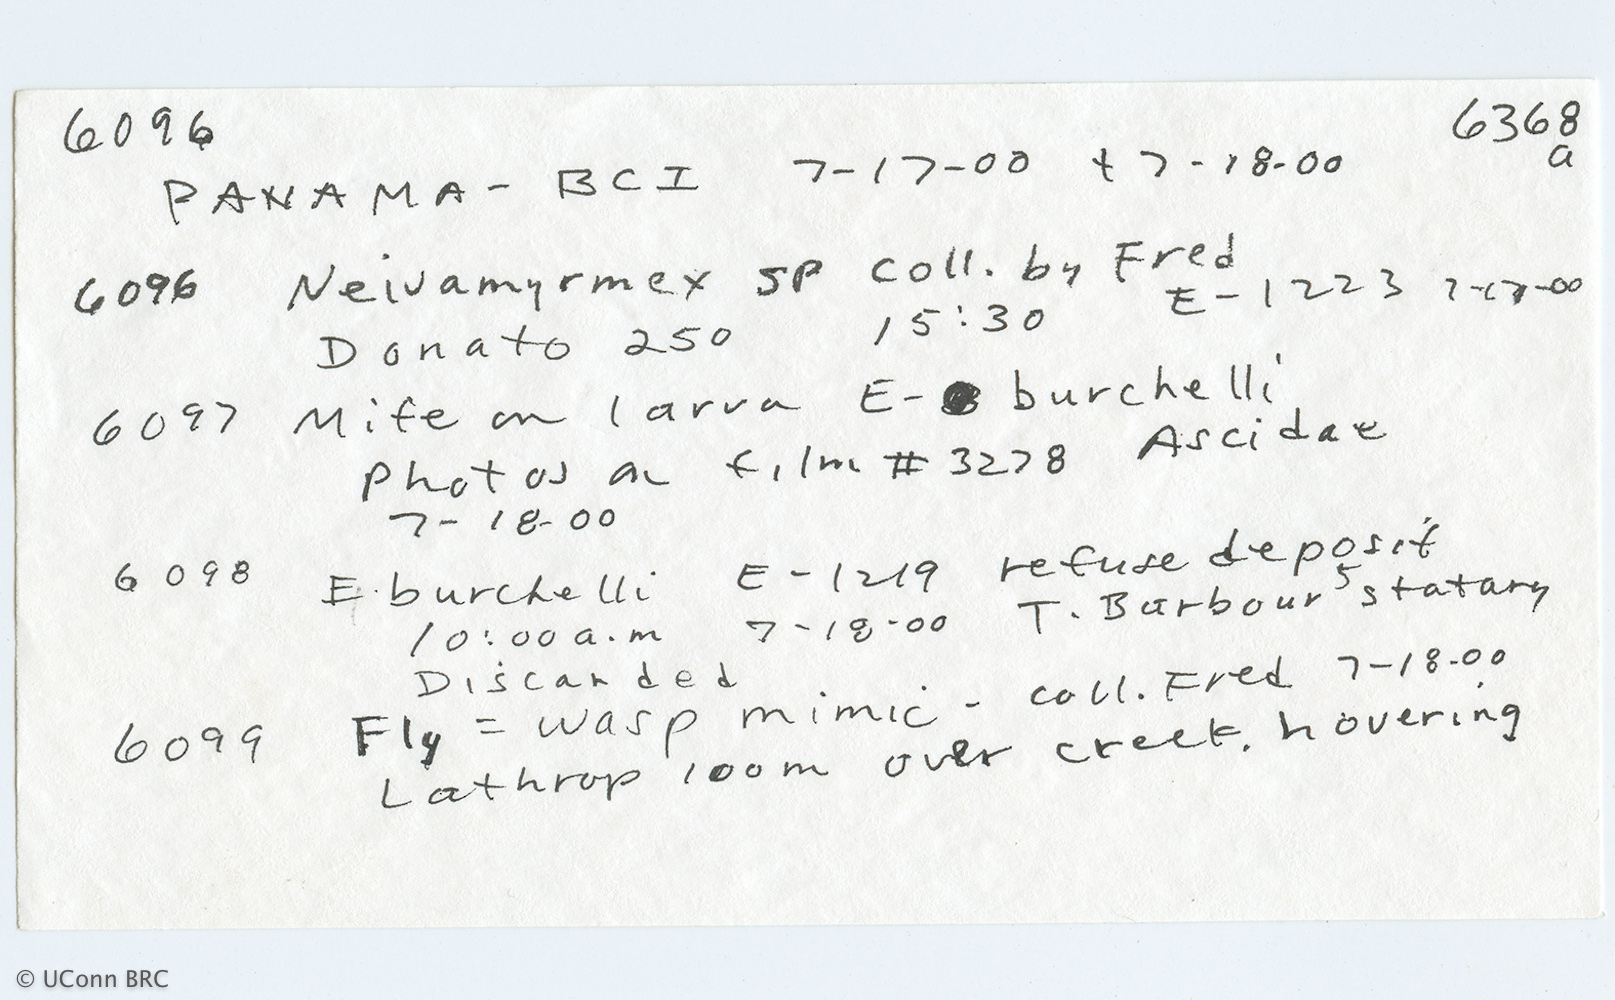 6096 6368
a
PANAMA - BCI 7-17-00 + 7-18-00
6096 Neivamyrmex sp coll. by Fred
Donato 250 15:30 E-1223 7-17-00
6097 Mite on larva E- burchelli
Photos on film #3278 Ascidae
7-18-00
6098 E. burchelli E-1219 refuse deposit
10:00 a.m 7-18-00 T. Barbour 5 statary
Discarded
6099 Fly = wasp mimic - coll. Fred 7-18-00
Lathrop 100m over creek. hovering
© UConn BRC